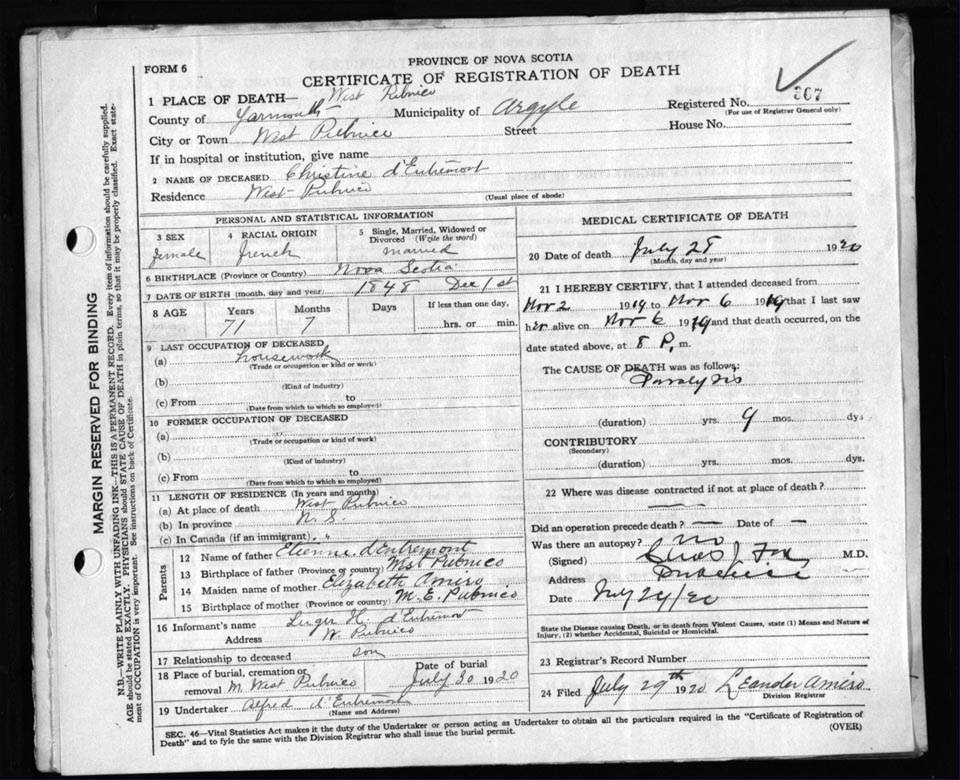 PROVINCE OF NOVA SCOTIA
FORM 6
CERTIFICATE OF REGISTRATION OF DEATH
1 PLACE OF DEATH— West Pubnico
Registered No. 307
(For use of Registrar General only)
County of Yarmouth Municipality of Argyle
City or Town West Pubnico Street House No.
If in hospital or institution, give name
2 NAME OF DECEASED Christine d'Entremont
Residence West Pubnico
(Usual place of abode)
PERSONAL AND STATISTICAL INFORMATION
3 SEX
female
4 RACIAL ORIGIN
French
5 Single, Married, Widowed or Divorced (Write the word)
married
6 BIRTHPLACE (Province or Country) Nova Scotia
7 DATE OF BIRTH (month, day and year) 1848 Dec 1st
8 AGE Years Months Days If less than one day,
71 7 hrs. or min.
9 LAST OCCUPATION OF DECEASED
(a) housework
(Trade or occupation or kind of work)
(b)
(Kind of industry)
(c) From to
(Date from which to which so employed)
10 FORMER OCCUPATION OF DECEASED
(a)
(Trade or occupation or kind of work)
(b)
(Kind of industry)
(c) From to
(Date from which to which so employed)
11 LENGTH OF RESIDENCE (In years and months)
(a) At place of death West Pubnico
(b) In province N.S.
(c) In Canada (if an immigrant)
Parents
12 Name of father Etienne d'Entremont
13 Birthplace of father (Province or country) Pubnico
14 Maiden name of mother Elizabeth Amero
15 Birthplace of mother (Province or country) M. E. Pubnico
16 Informant's name H. d'Entremont
Address W. Pubnico
17 Relationship to deceased son
18 Place of burial, cremation or removal M. West Pubnico
Date of burial July 30 1920
19 Undertaker Alfred d'Entremont
(Name and Address)
MEDICAL CERTIFICATE OF DEATH
20 Date of death July 28 1920
(Month, day and year)
21 I HEREBY CERTIFY, that I attended deceased from
Nov 2 1919 to Nov 6 1919 that I last saw
her alive on Nov 6 1919 and that death occurred, on
date stated above, at 8 P. m.
The CAUSE OF DEATH was as follows:
Paralysis
(duration) yrs. 9 mos. dys.
CONTRIBUTORY
(Secondary)
(duration) yrs. mos. dys.
22 Where was disease contracted if not at place of death?
Did an operation precede death? — Date of —
Was there an autopsy? no
(Signed) Chas J. Fox M.D.
Address Pubnico
Date July 29/20
State the Disease causing Death, or in death from Violent Causes, state (1) Means and Nature of Injury, (2) whether Accidental, Suicidal or Homicidal.
23 Registrar's Record Number
24 Filed July 29th 1920 Leander Amiro
Division Registrar
SEC. 46—Vital Statistics Act makes it the duty of the Undertaker or person acting as Undertaker to obtain all the particulars required in the "Certificate of Registration of
Death" and to fyle the same with the Division Registrar who shall issue the burial permit.
(OVER)
MARGIN RESERVED FOR BINDING
N.B.—WRITE PLAINLY WITH UNFADING INK—THIS IS A PERMANENT RECORD. Every item of information should be carefully supplied.
AGE should be stated EXACTLY. PHYSICIANS should STATE CAUSE OF DEATH in plain terms, so that it may be properly classified. Exact statement
of OCCUPATION is very important. See instructions on back of Certificate.